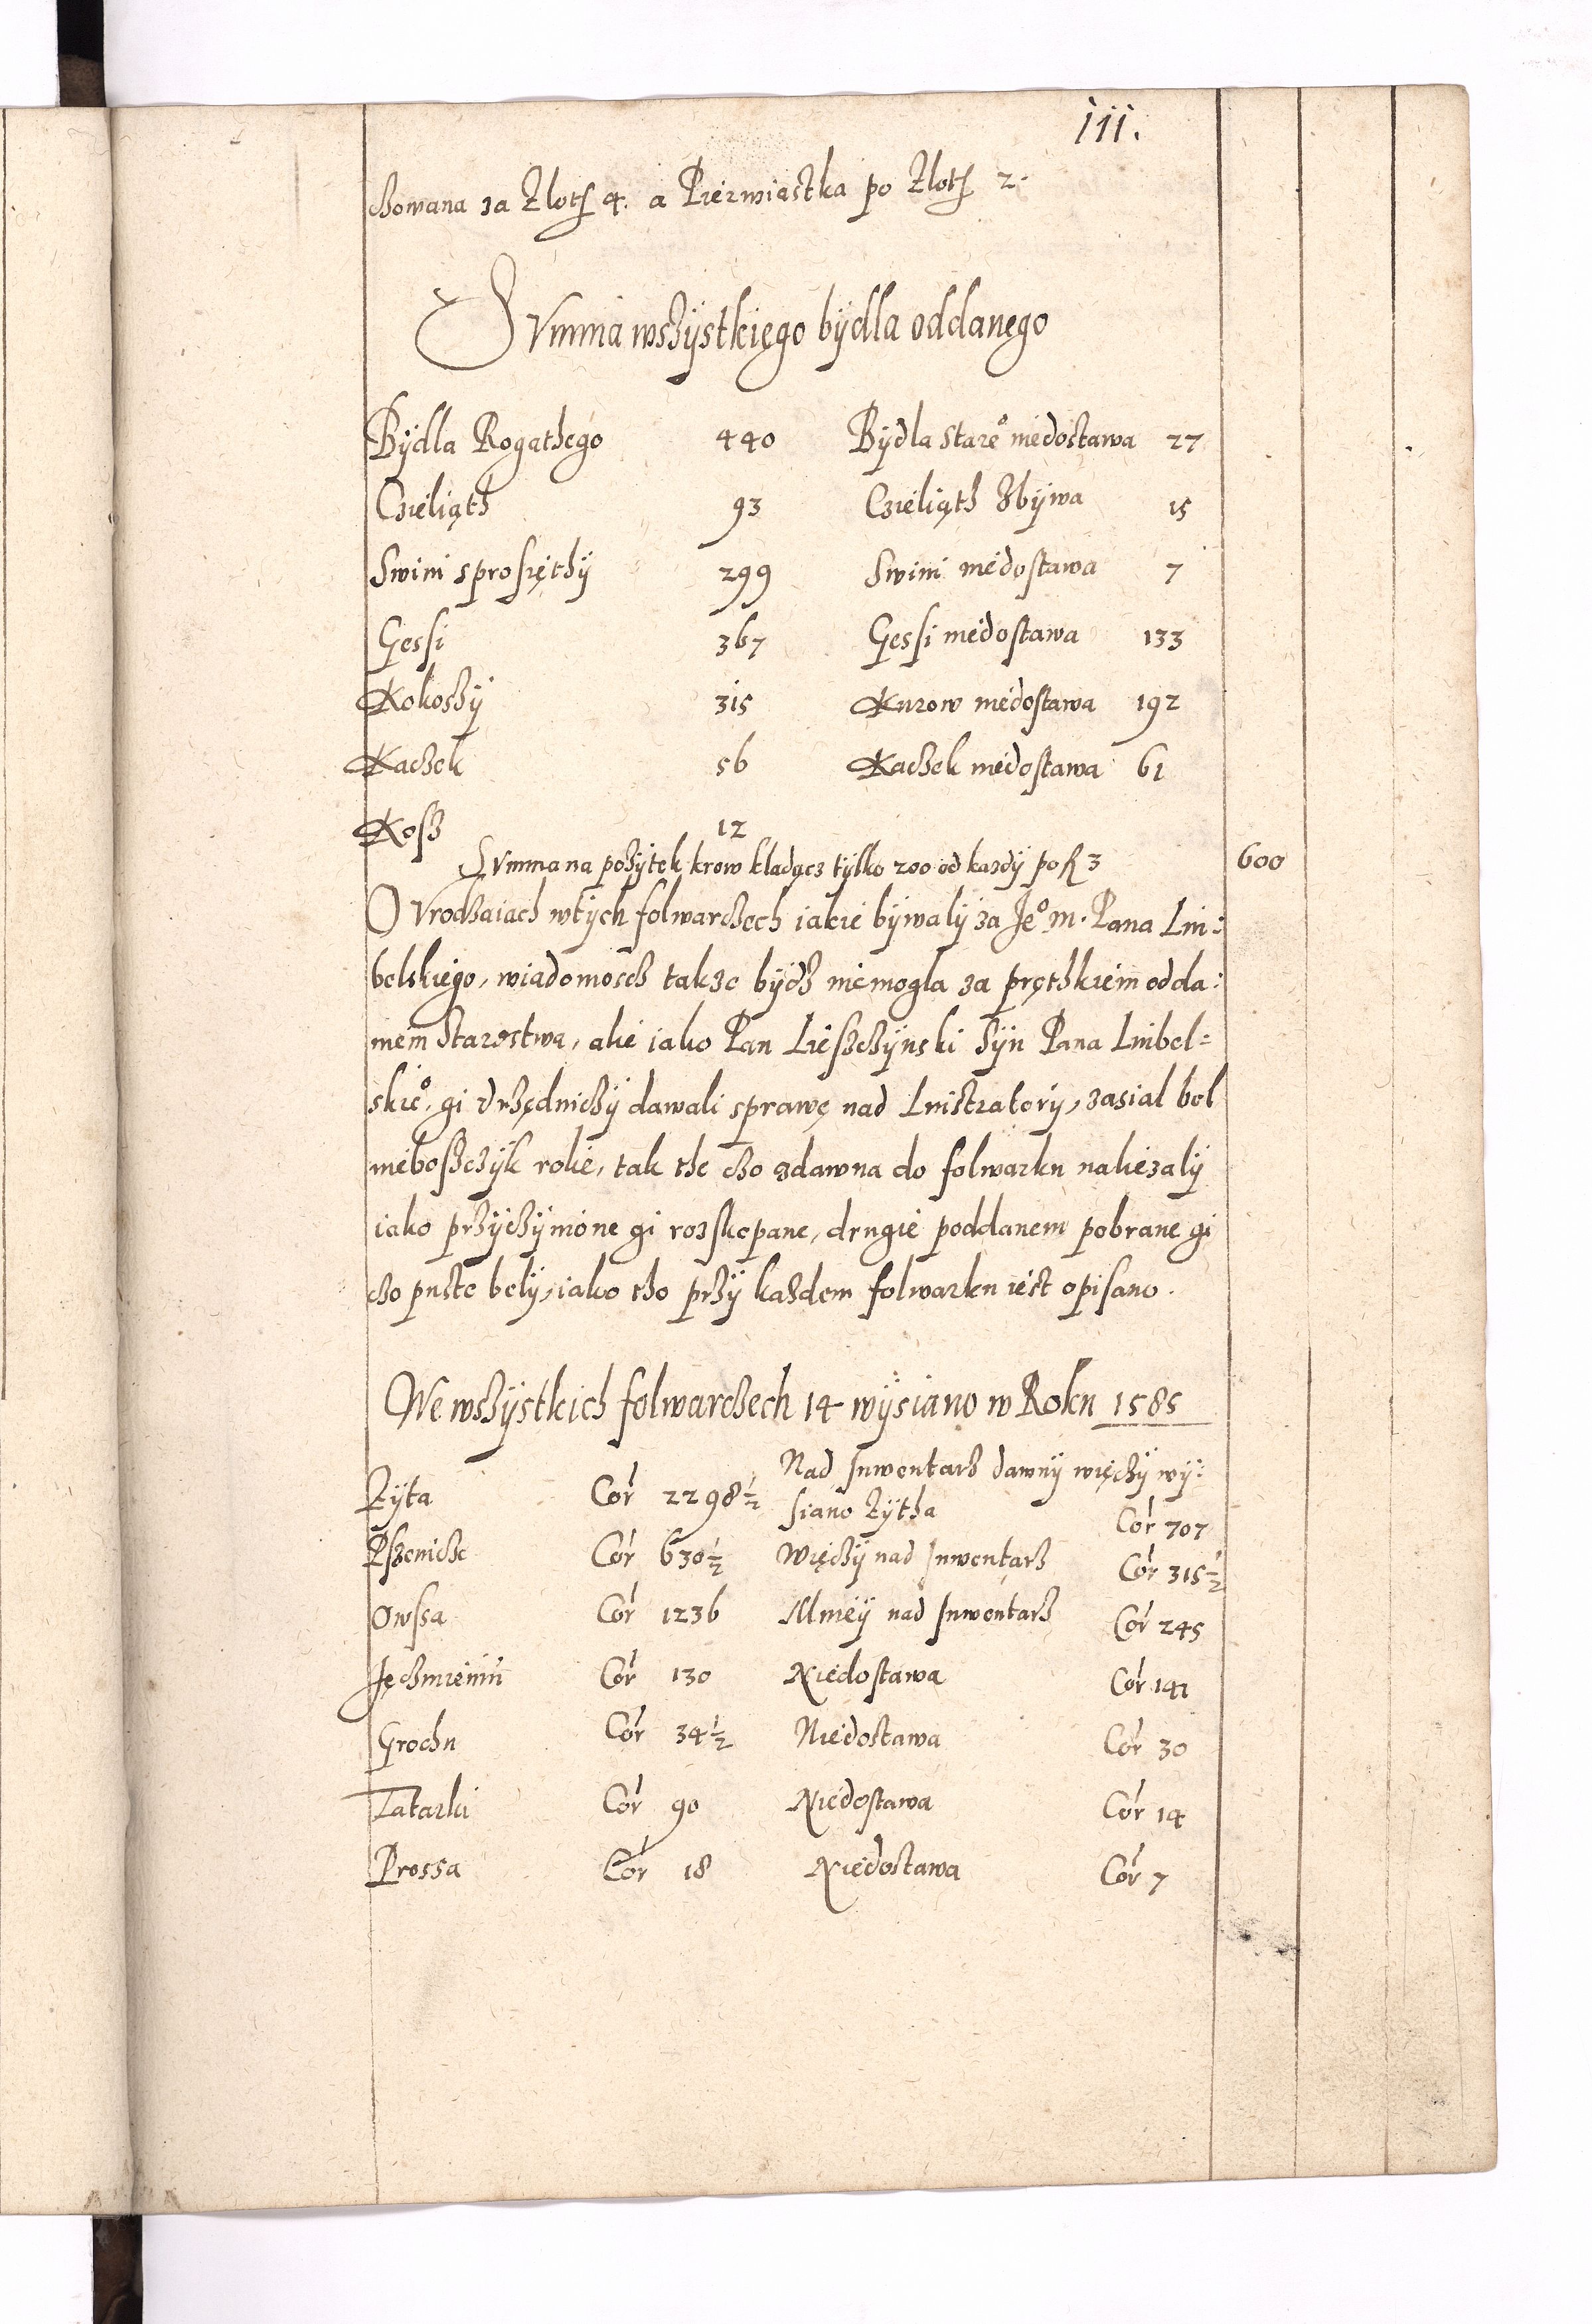 111.
chowana za Złoth 4. a Pierwiastka po Złoth 2.
Summa wszÿstkięgo bÿdła oddanego
Bÿdła Rogathego 440 Bÿdła stare° niedostawa 27
Czieliąth 93 Czieliąth Zbÿwa 15
Swini sprosięthÿ 299 Swini niedostawa 7
Gęssi 367 Gęssi niedostawa 133
Kokoszÿ 315 Kurow niedostawa 192
Kaczek 56 Kaczek niedostawa 61
Kosz 12
Summa na pozÿtek krow kładącz tÿlko 200 od kazdÿ po fl 3 600
O Vrodzaiach wtÿch folwarczech iakie bÿwałÿ za Je° M. Pana Lu:
belskiego, wiadomoscz takze bÿdz niemogła za prethkiem odda:
niem Starostwa, alie iako Pan Lieszczÿnski Sÿn Pana Lubel=
skie°, gi Vrzędniczÿ dawali sprawę nad Lustratorÿ, zasiał beł
nieboszczÿk rolie, tak the cho zdawna do folwarku naliezałÿ
iako przÿczÿnione gi rozkopane, drugie poddanem pobrane gi
cho puste bełÿ, iako tho przÿ kazdem folwarku iest opisano.
We wszÿstkich folwarczech 14 wÿsiano w Roku 1585
Nad Inwentarz dawnÿ więczÿ wÿ:
Zÿta Cor 2298½ siano Zÿtha Cor 707
Pszenicze Cor 630½ Więczÿ nad Inwentarz Cor 315½
Owssa Cor 1236 Mnieÿ nad Inwentarz Cor 245
Jęchmieniu Cor 130 Niedostawa Cor 141
Grochu Cor 34½ Niedostawa Cor 30
Tatarki Cor 90 Niedostawa Cor 14
Prossa Cor 18 Niedostawa Cor 7